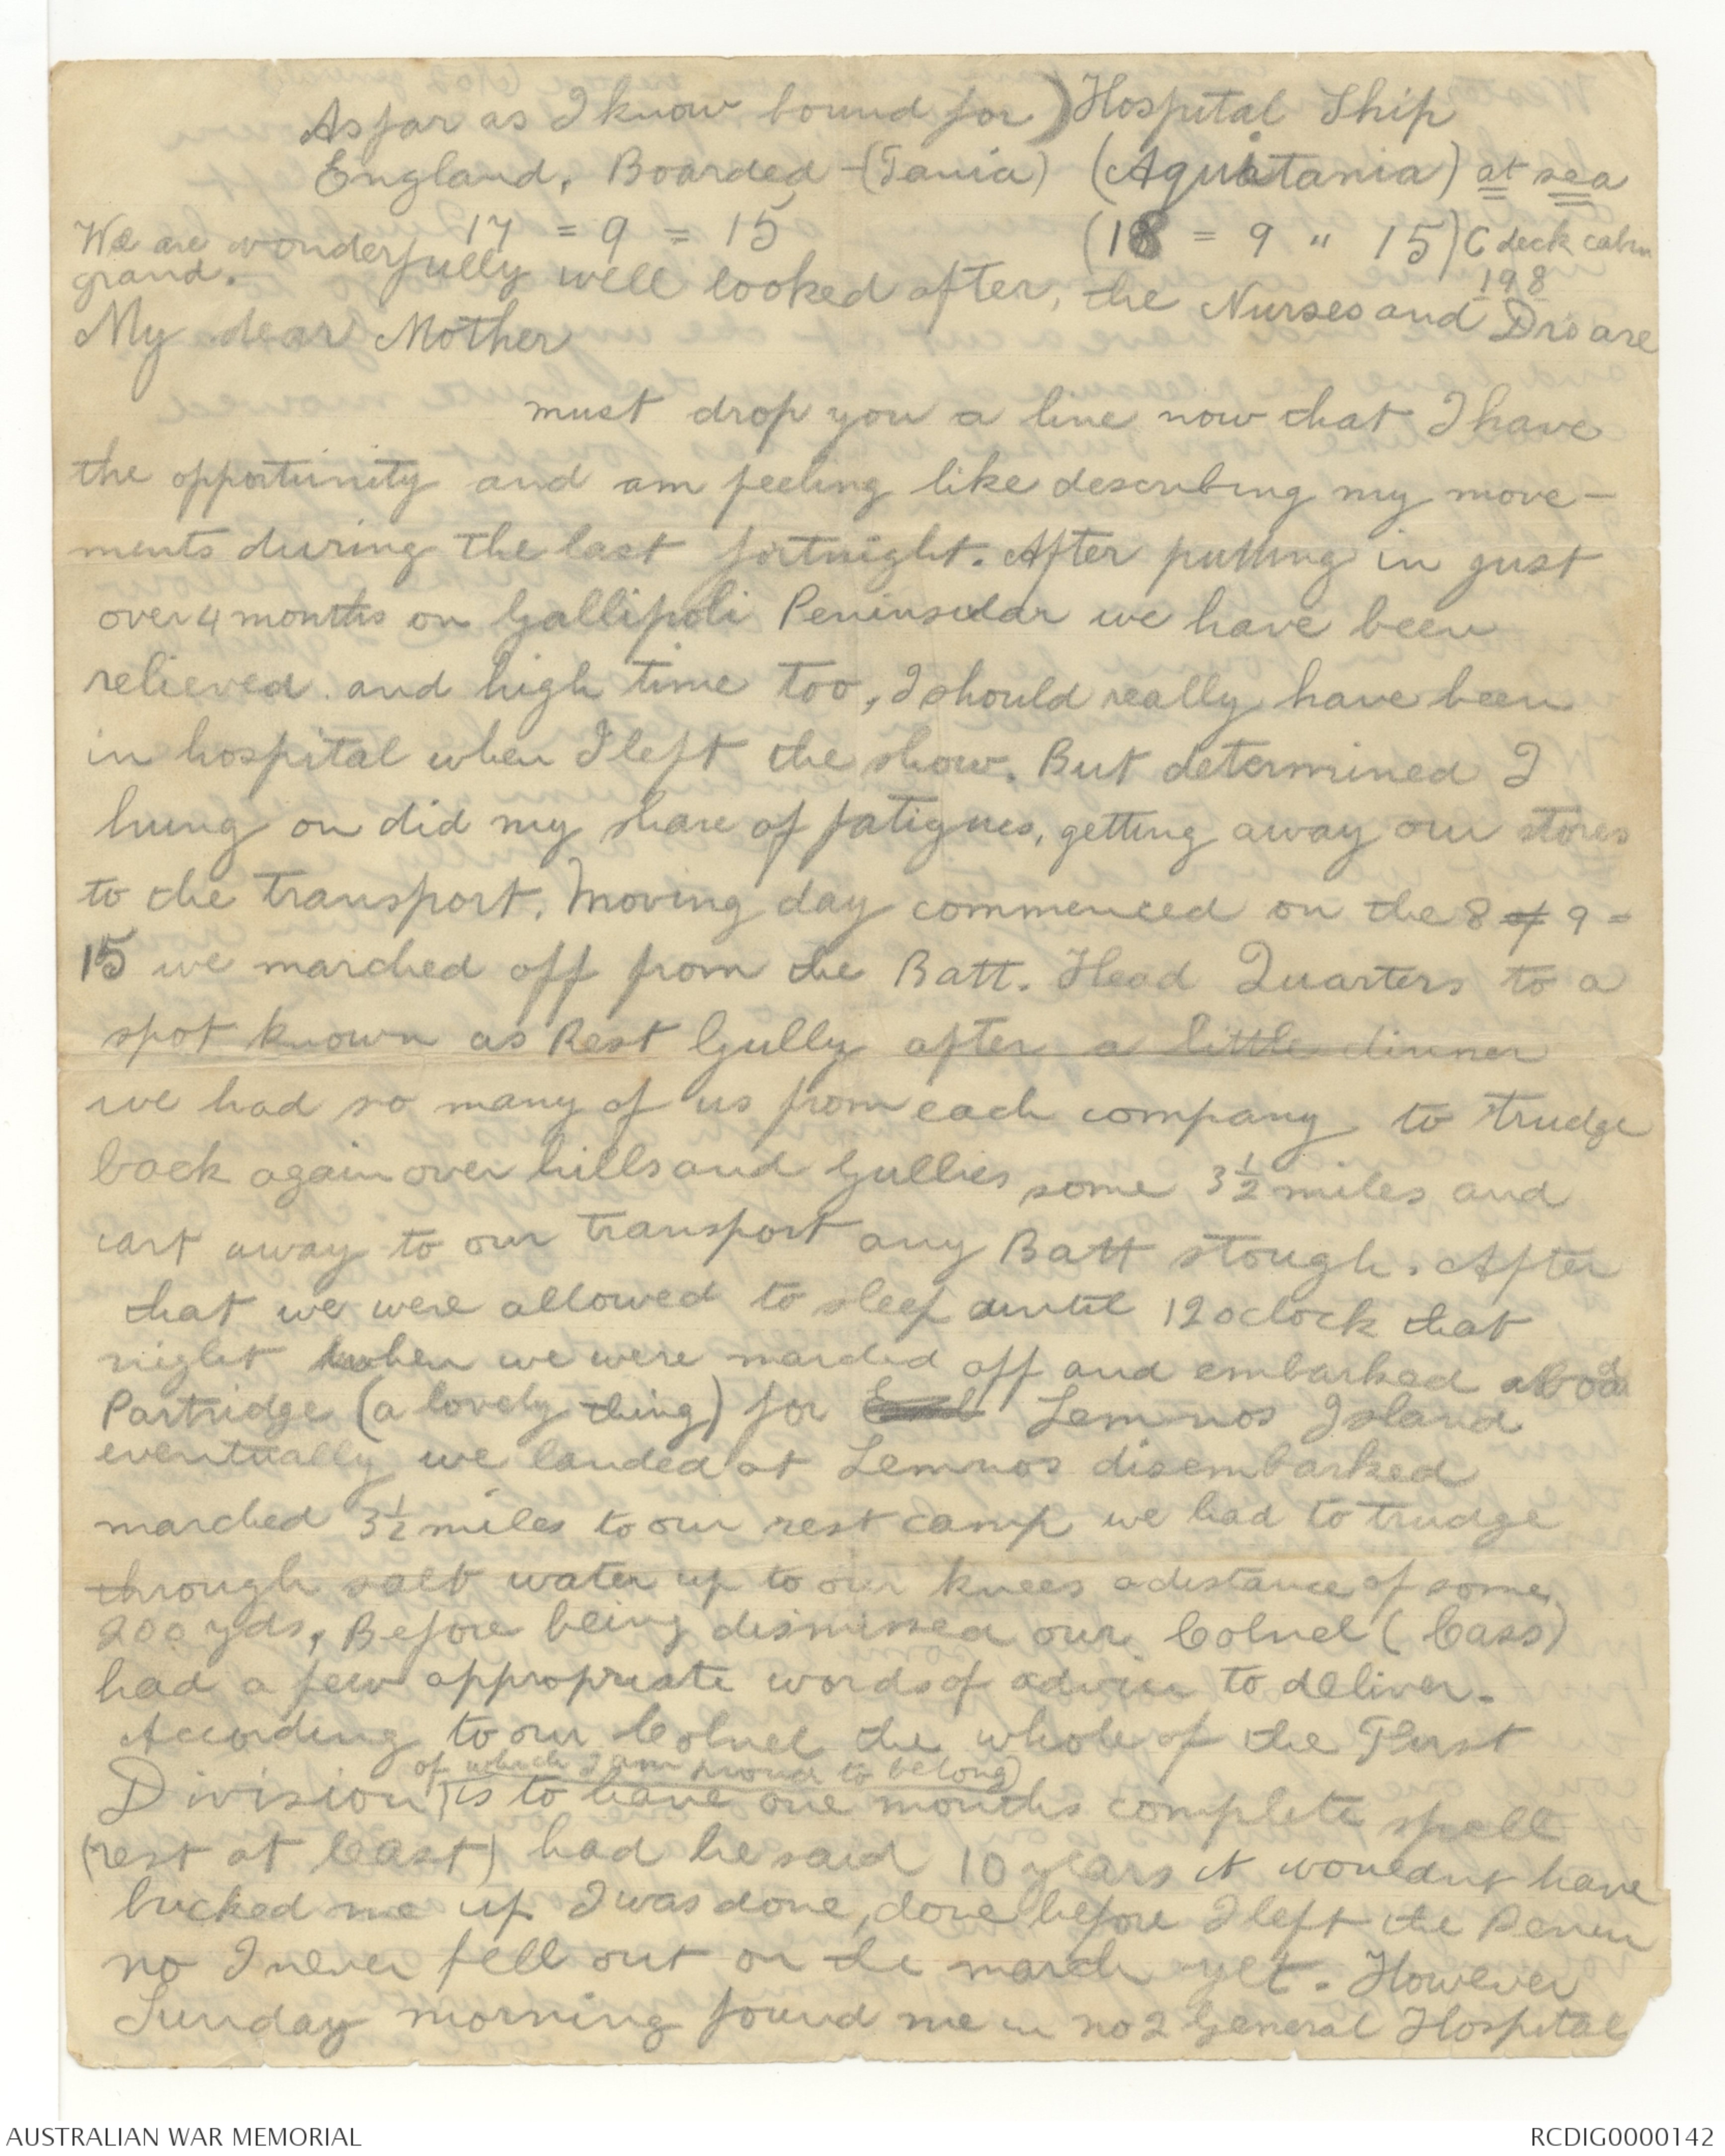 As far as I know bound for) Hospital Ship
England, Boarded (Tania) (Aquitania) at sea
17 = 9 = 15 (18 = 9 " 15) C deck cabin
198
We are wonderfully well looked after, the Nurses and Drs are
grand.
My dear Mother
must drop you a line now that I have
the opportunity and am feeling like describing my move-
ments during the last fortnight. After putting in just
over 4 months on Gallipoli Peninsular we have been
relieved and high time too, I should really have been
in hospital when I left the show. But determined I
hung on did my share of fatigues, getting away our stores
to the transport. Moving day commenced on the 8 of 9 =
15 we marched off from the Batt. Head Quarters to a
spot known as Rest Gully after a little dinner
we had so many of us from each company to trudge
back again over hills and Gullies some 3½ miles and
cart away to our transport any Batt stough. After
that we were allowed to sleep until 12 oclock that
night when we were marched off and embarked aboa
Partridge (a lovely thing) for Lemnos Island
eventually we landed at Lemnos disembarked
marched 3½ miles to our rest camp we had to trudge
through salt water up to our knees a distance of some
200 yds, Before being dismissed our Colnel (Cass)
had a few appropriate words of advice to deliver.
According to our Colnel the whole of the First
of which I am proud to belong)
Division is to have one months complete spell
(rest at least) had he said 10 years it wouldnt have
bucked me up. I was done, done before I left the Penin
no I never fell out on the march yet. However
Sunday morning found me in no 2 General Hospital
AUSTRALIAN WAR MEMORIAL
RCDIG0000142